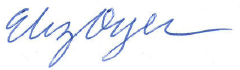 Eliz Oyer